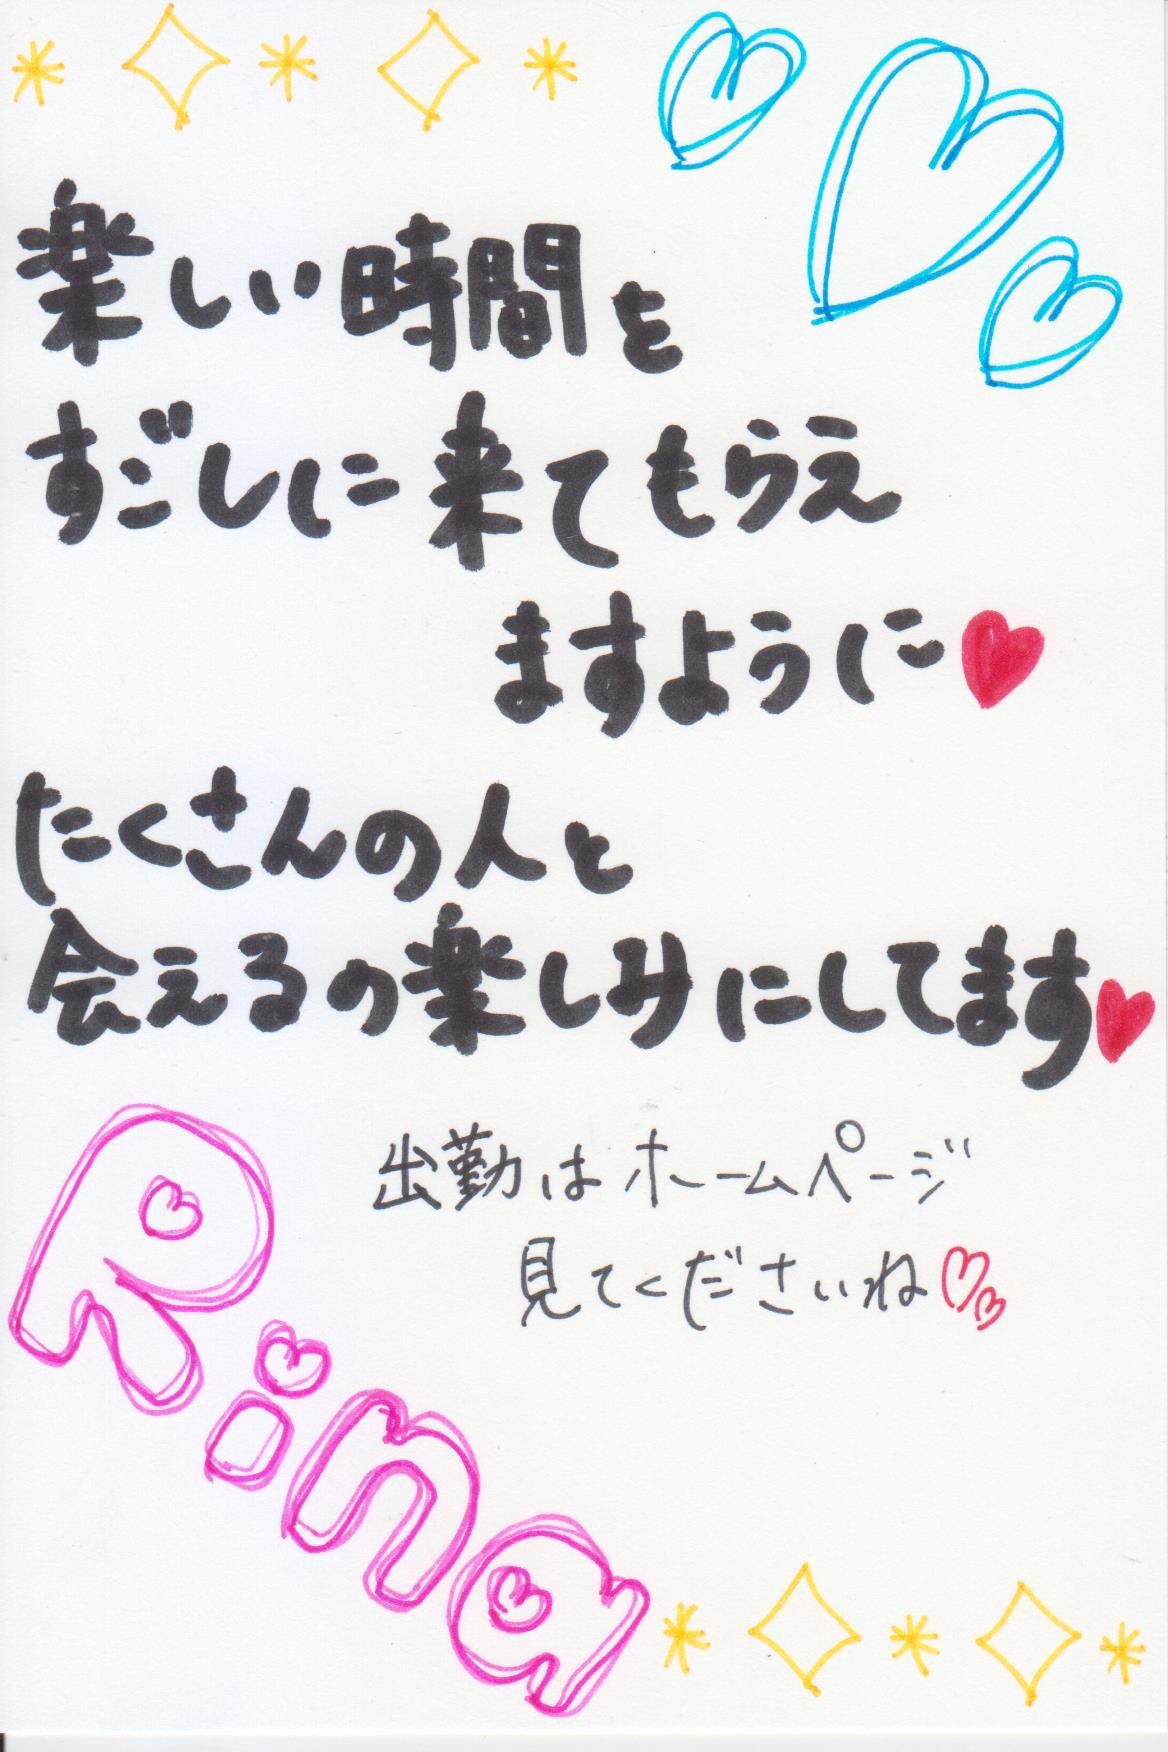 楽しい時間を
すごしに来てもらえ
ますように♥
たくさんの人と
会えるの楽しみにしてます♥
出勤はホームページ
見てくださいね♡♡
Rina